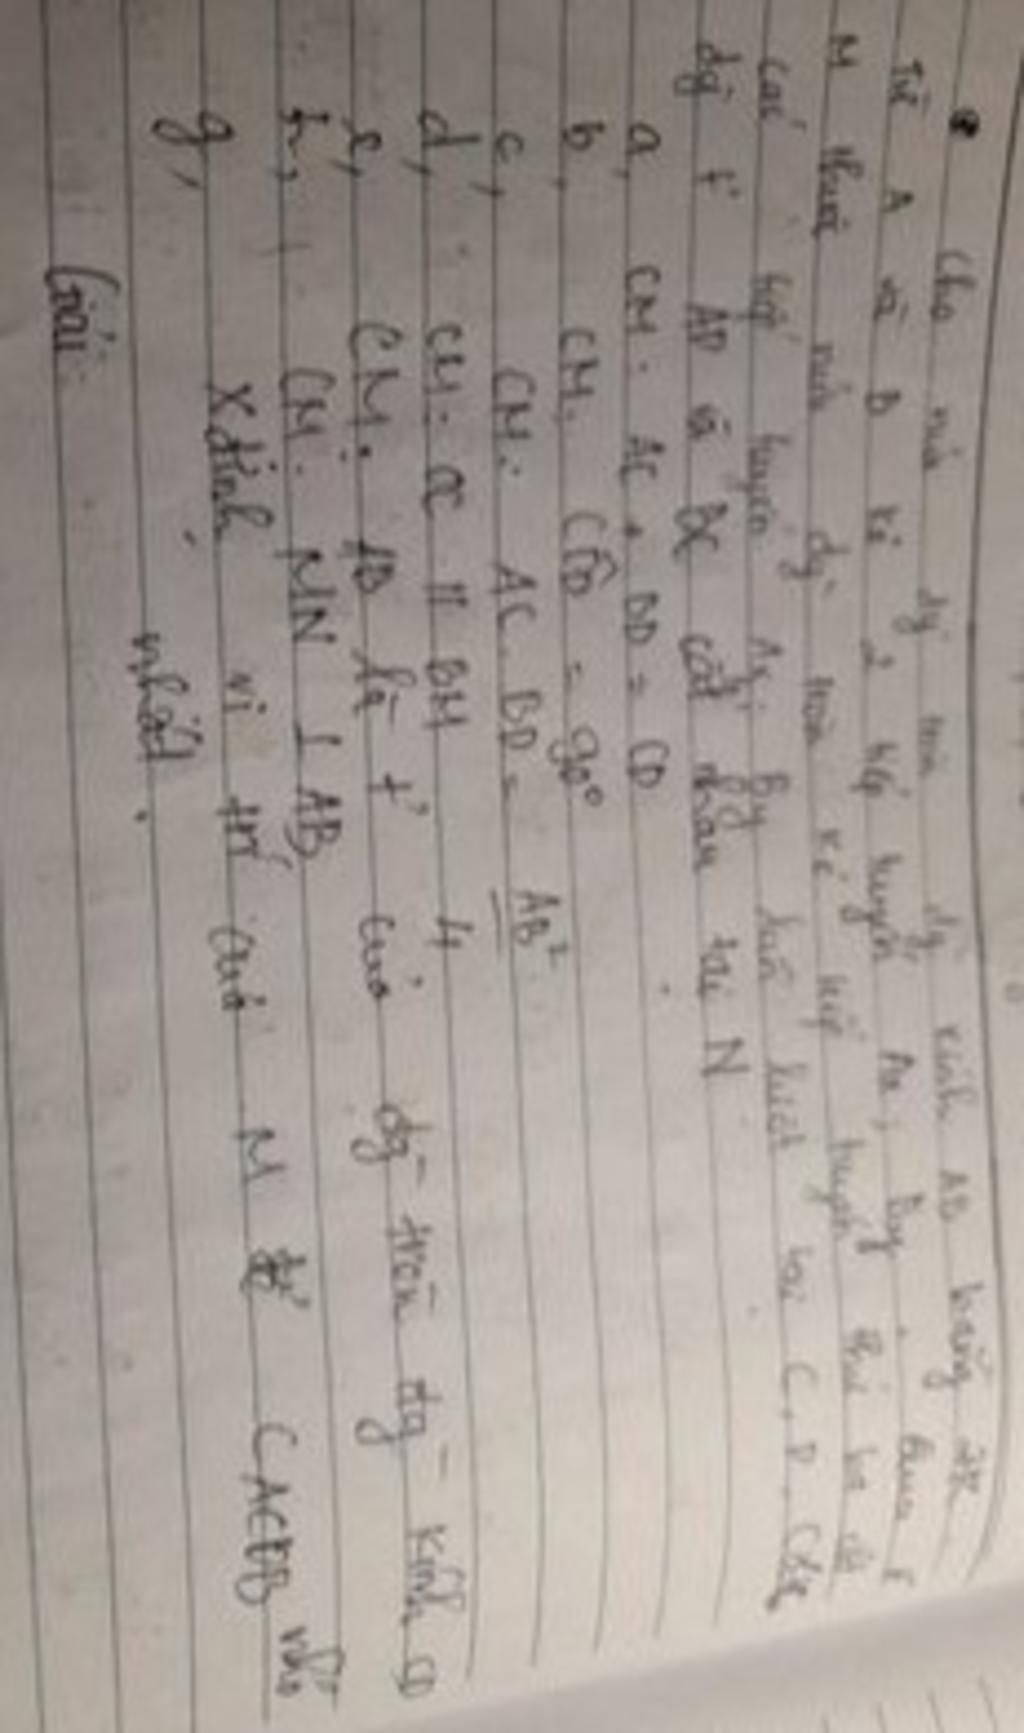 Cho nửa đg tròn đg kính AB bằng 2R
Từ A và B kẻ 2 tiếp tuyến Ax, By. Qua
M thuộc nửa đg tròn kẻ tiếp tuyến thứ ba cắt
các tiếp tuyến Ax, By lần lượt tại C, D. Các
đg t' AD và BC cắt nhau tại N
a, CM: AC + BD = CD
b, CM: CÔD = 90°
c, CM: AC. BD = AB²
4
d, CM: OC // BM
e, CM: AB là t' của đg tròn đg kính CD
h, CM: MN ⊥ AB
g, Xđịnh vị trí của M để C ACDB nhỏ
nhất.
Giải: